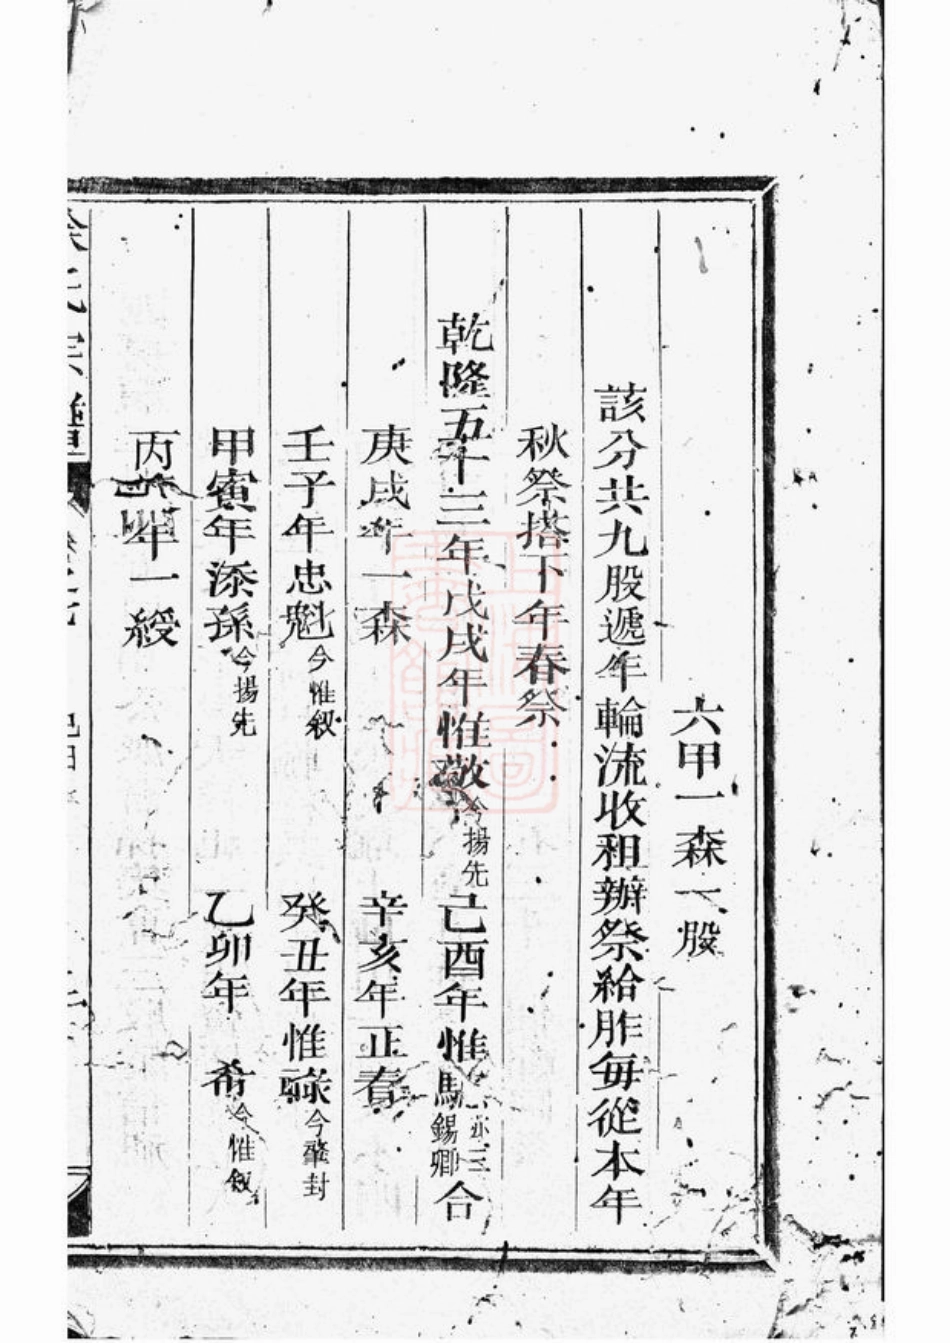 六甲一森一股
該分共九股遞年輪流收租辦祭給胙每從本年
秋祭搭下年春祭
乾隆五十三年戊戌年惟敬今揚先己酉年惟馱亦三錫卿合
庚戌年一森 辛亥年正春
壬子年忠魁今惟叙 癸丑年惟祿今肇封
甲寅年添孫今揚先 乙卯年希今惟叙
丙年一綬